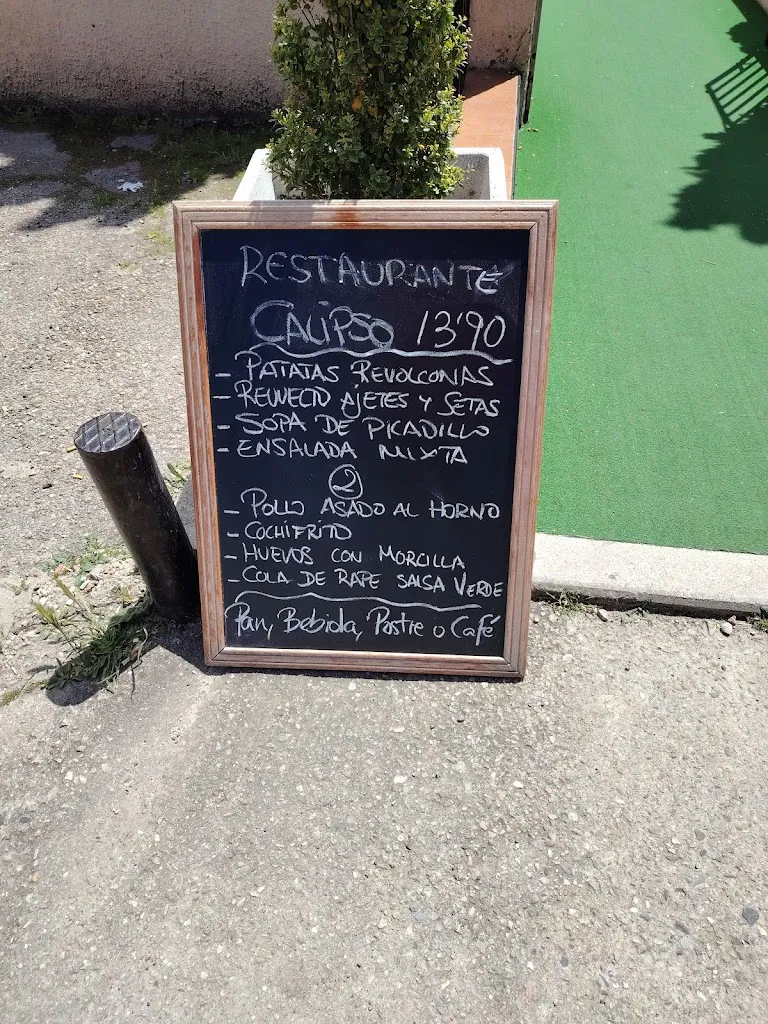 RESTAURANTE
CALIPSO 13'90
- PATATAS REVOLCONAS
- REVUELTO AJETES Y SETAS
- SOPA DE PICADILLO
- ENSALADA MIXTA
2
- POLLO ASADO AL HORNO
- COCHIFRITO
- HUEVOS CON MORCILLA
- COLA DE RAPE SALSA VERDE
Pan, Bebida, Postre o Café